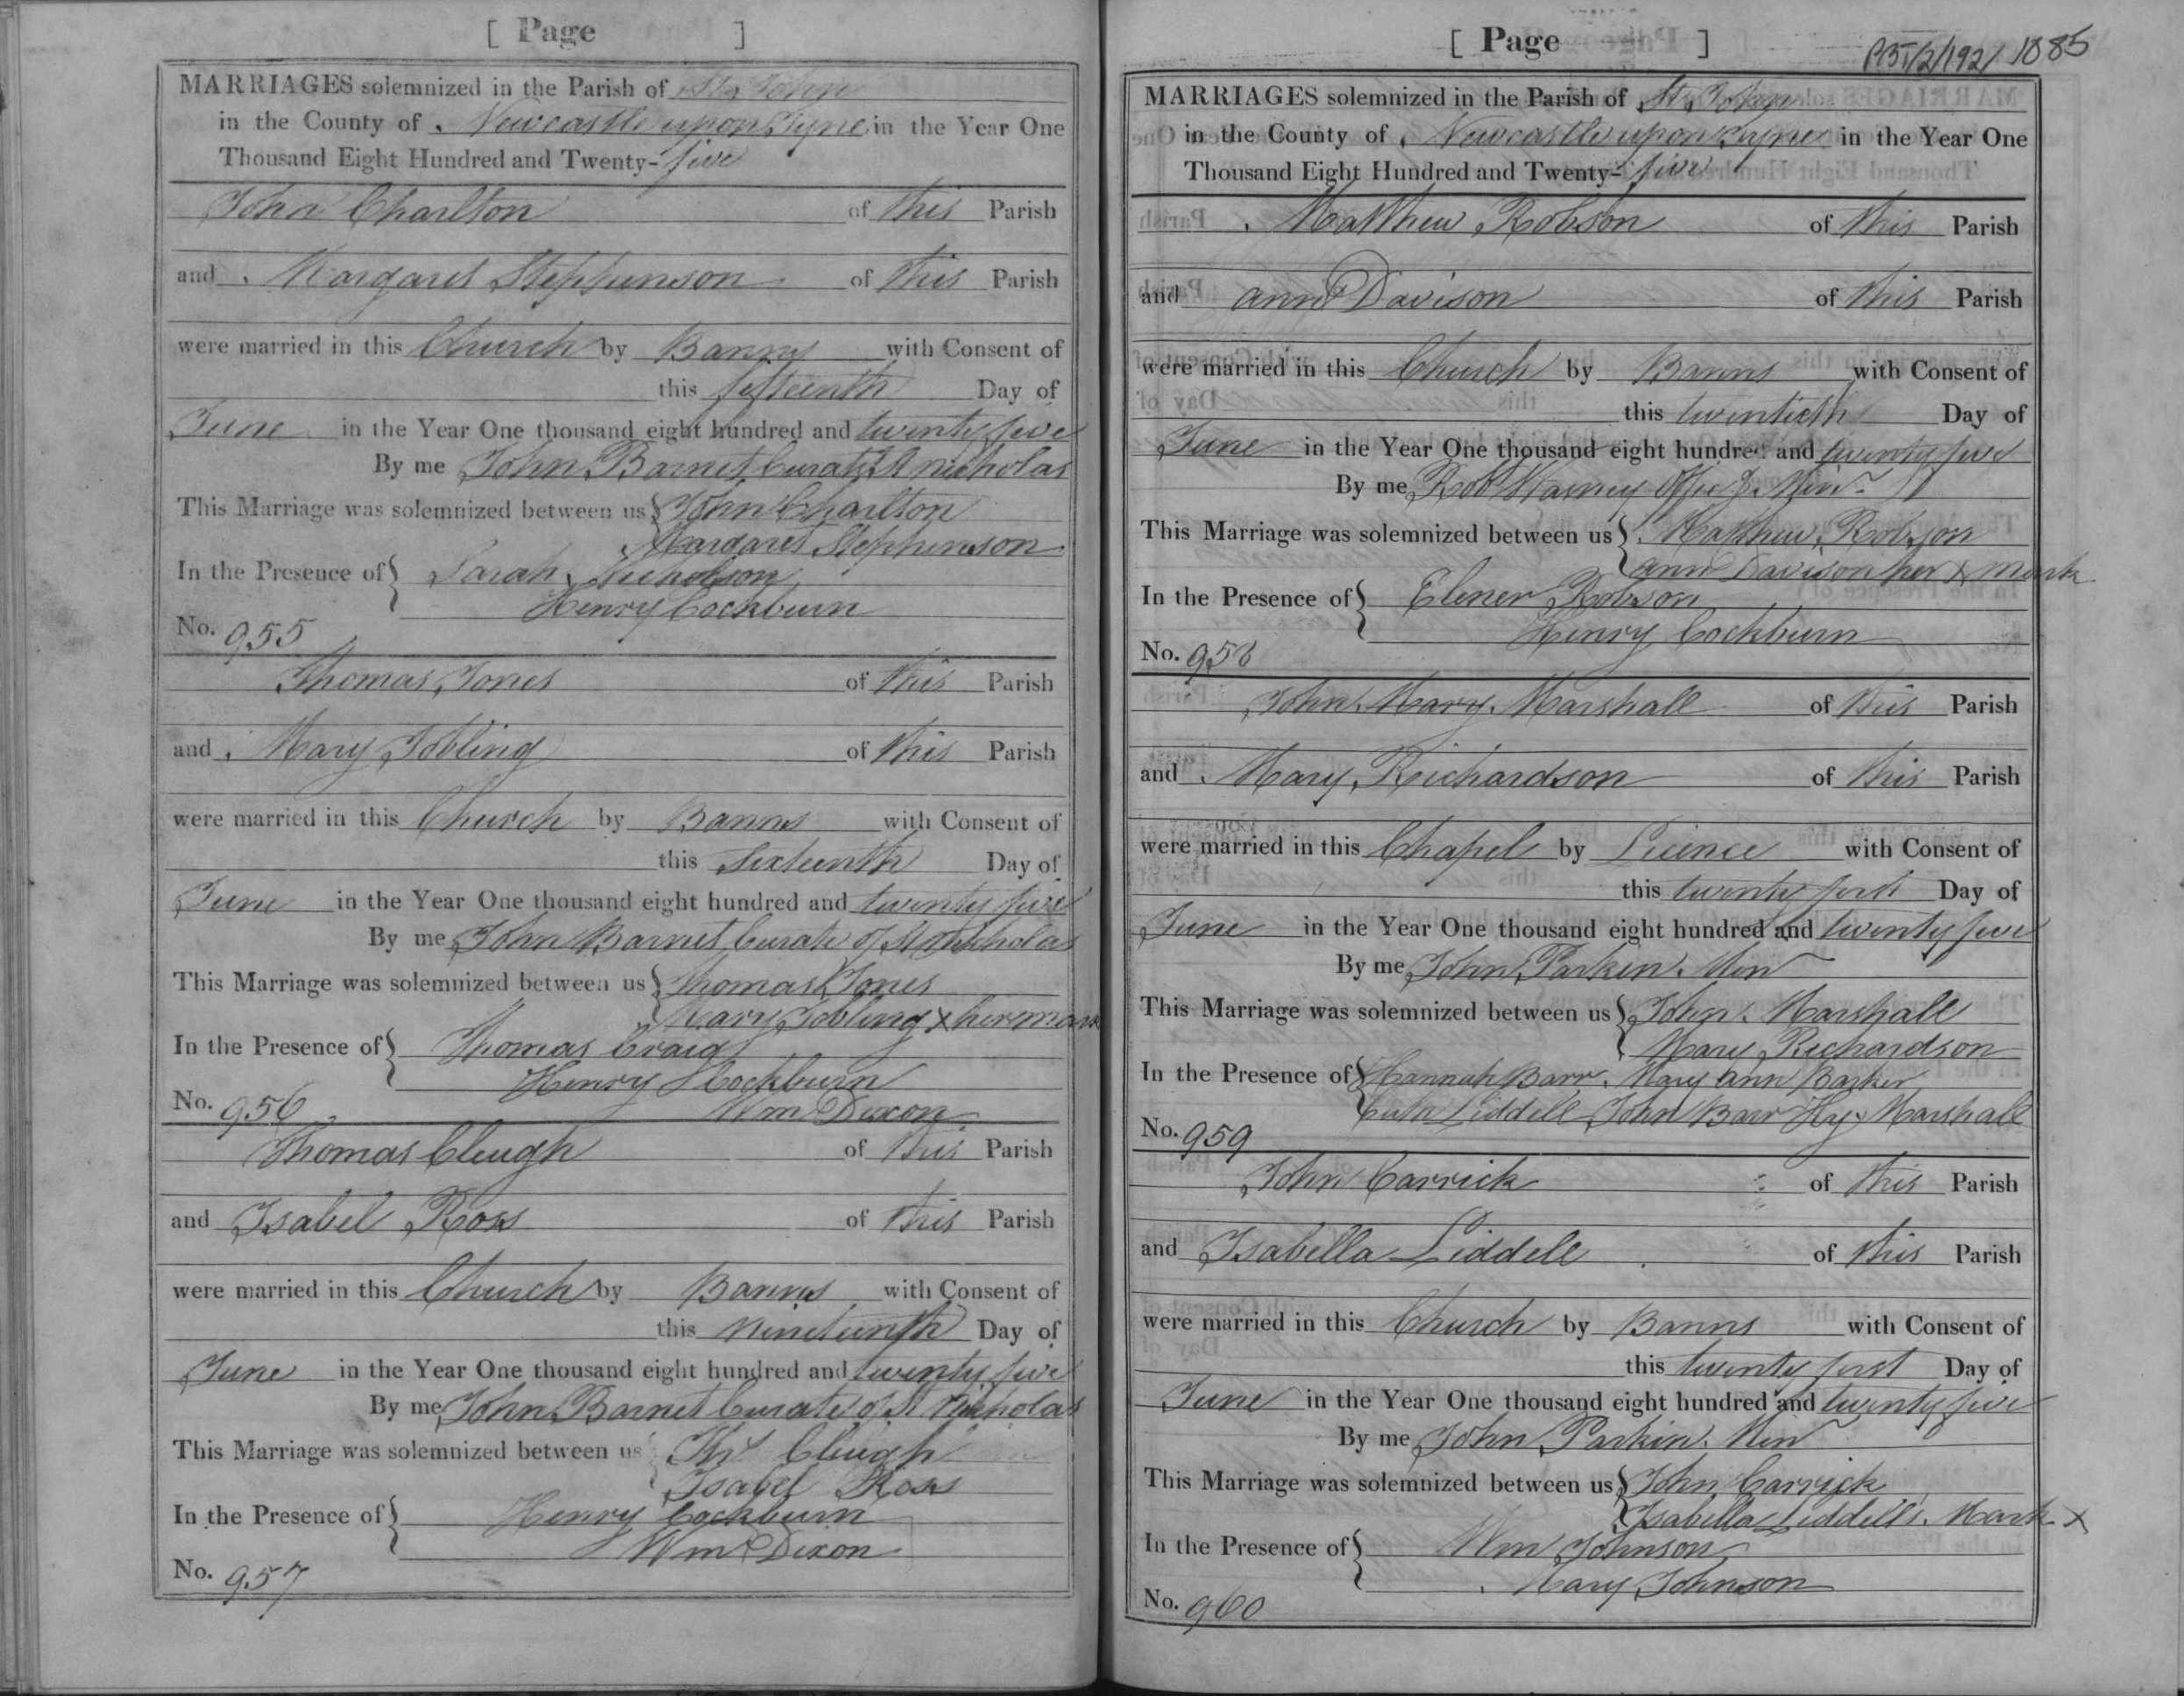 [ Page ]
MARRIAGES solemnized in the Parish of St John
in the County of Newcastle upon Tyne in the Year One
Thousand Eight Hundred and Twenty-five
John Charlton of this Parish
and Margaret Stephenson of this Parish
were married in this Church by Banns with Consent of
this fifteenth Day of
June in the Year One thousand eight hundred and twenty five
By me John Barnet Curate St Nicholas
This Marriage was solemnized between us John Charlton
Margaret Stephenson
In the Presence of Sarah Nicholson
Henry Cockburn
No. 955
Thomas Jones of this Parish
and Mary Jobling of this Parish
were married in this Church by Banns with Consent of
this Sixteenth Day of
June in the Year One thousand eight hundred and twenty five
By me John Barnet Curate of St Nicholas
This Marriage was solemnized between us Thomas Jones
Mary Jobling x her mark
In the Presence of Thomas Craig
Henry Cockburn
No. 956 Wm Dixon
Thomas Clough of this Parish
and Isabel Ross of this Parish
were married in this Church by Banns with Consent of
this nineteenth Day of
June in the Year One thousand eight hundred and twenty five
By me John Barnet Curate of St Nicholas
This Marriage was solemnized between us Thos Clough
Isabel Ross
In the Presence of Henry Cockburn
Wm Dixon
No. 957
[ Page ] 1885
MARRIAGES solemnized in the Parish of St John
in the County of Newcastle upon Tyne in the Year One
Thousand Eight Hundred and Twenty-five
Matthew Robson of this Parish
and ann Davison of this Parish
were married in this Church by Banns with Consent of
this twentieth Day of
June in the Year One thousand eight hundred and twenty five
By me Robt Min
This Marriage was solemnized between us Matthew Robson
ann Davison her x mark
In the Presence of Elener Robson
Henry Cockburn
No. 958
John Mary Marshall of this Parish
and Mary Richardson of this Parish
were married in this Chapel by Licince with Consent of
this twenty first Day of
June in the Year One thousand eight hundred and twenty five
By me John Parkin Min
This Marriage was solemnized between us John Marshall
Mary Richardson
In the Presence of Hannah Barr Mary ann Barker
Liddell John Barr Hy Marshall
No. 959
John Carrick of this Parish
and Isabella Liddell of this Parish
were married in this Church by Banns with Consent of
this twenty first Day of
June in the Year One thousand eight hundred and twenty five
By me John Parkin Min
This Marriage was solemnized between us John Carrick
Isabella Liddell's Mark x
In the Presence of Wm Johnson
Mary Johnson
No. 960